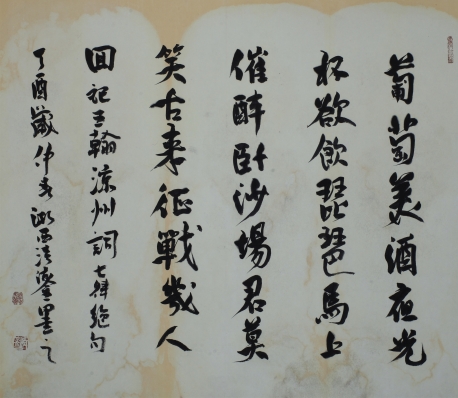 葡萄美酒夜光
杯欲飲琵琶馬上
催醉卧沙場君莫
笑古来征戰幾人
回記王翰涼州詞七律絕句
丁酉歲仲西墨之